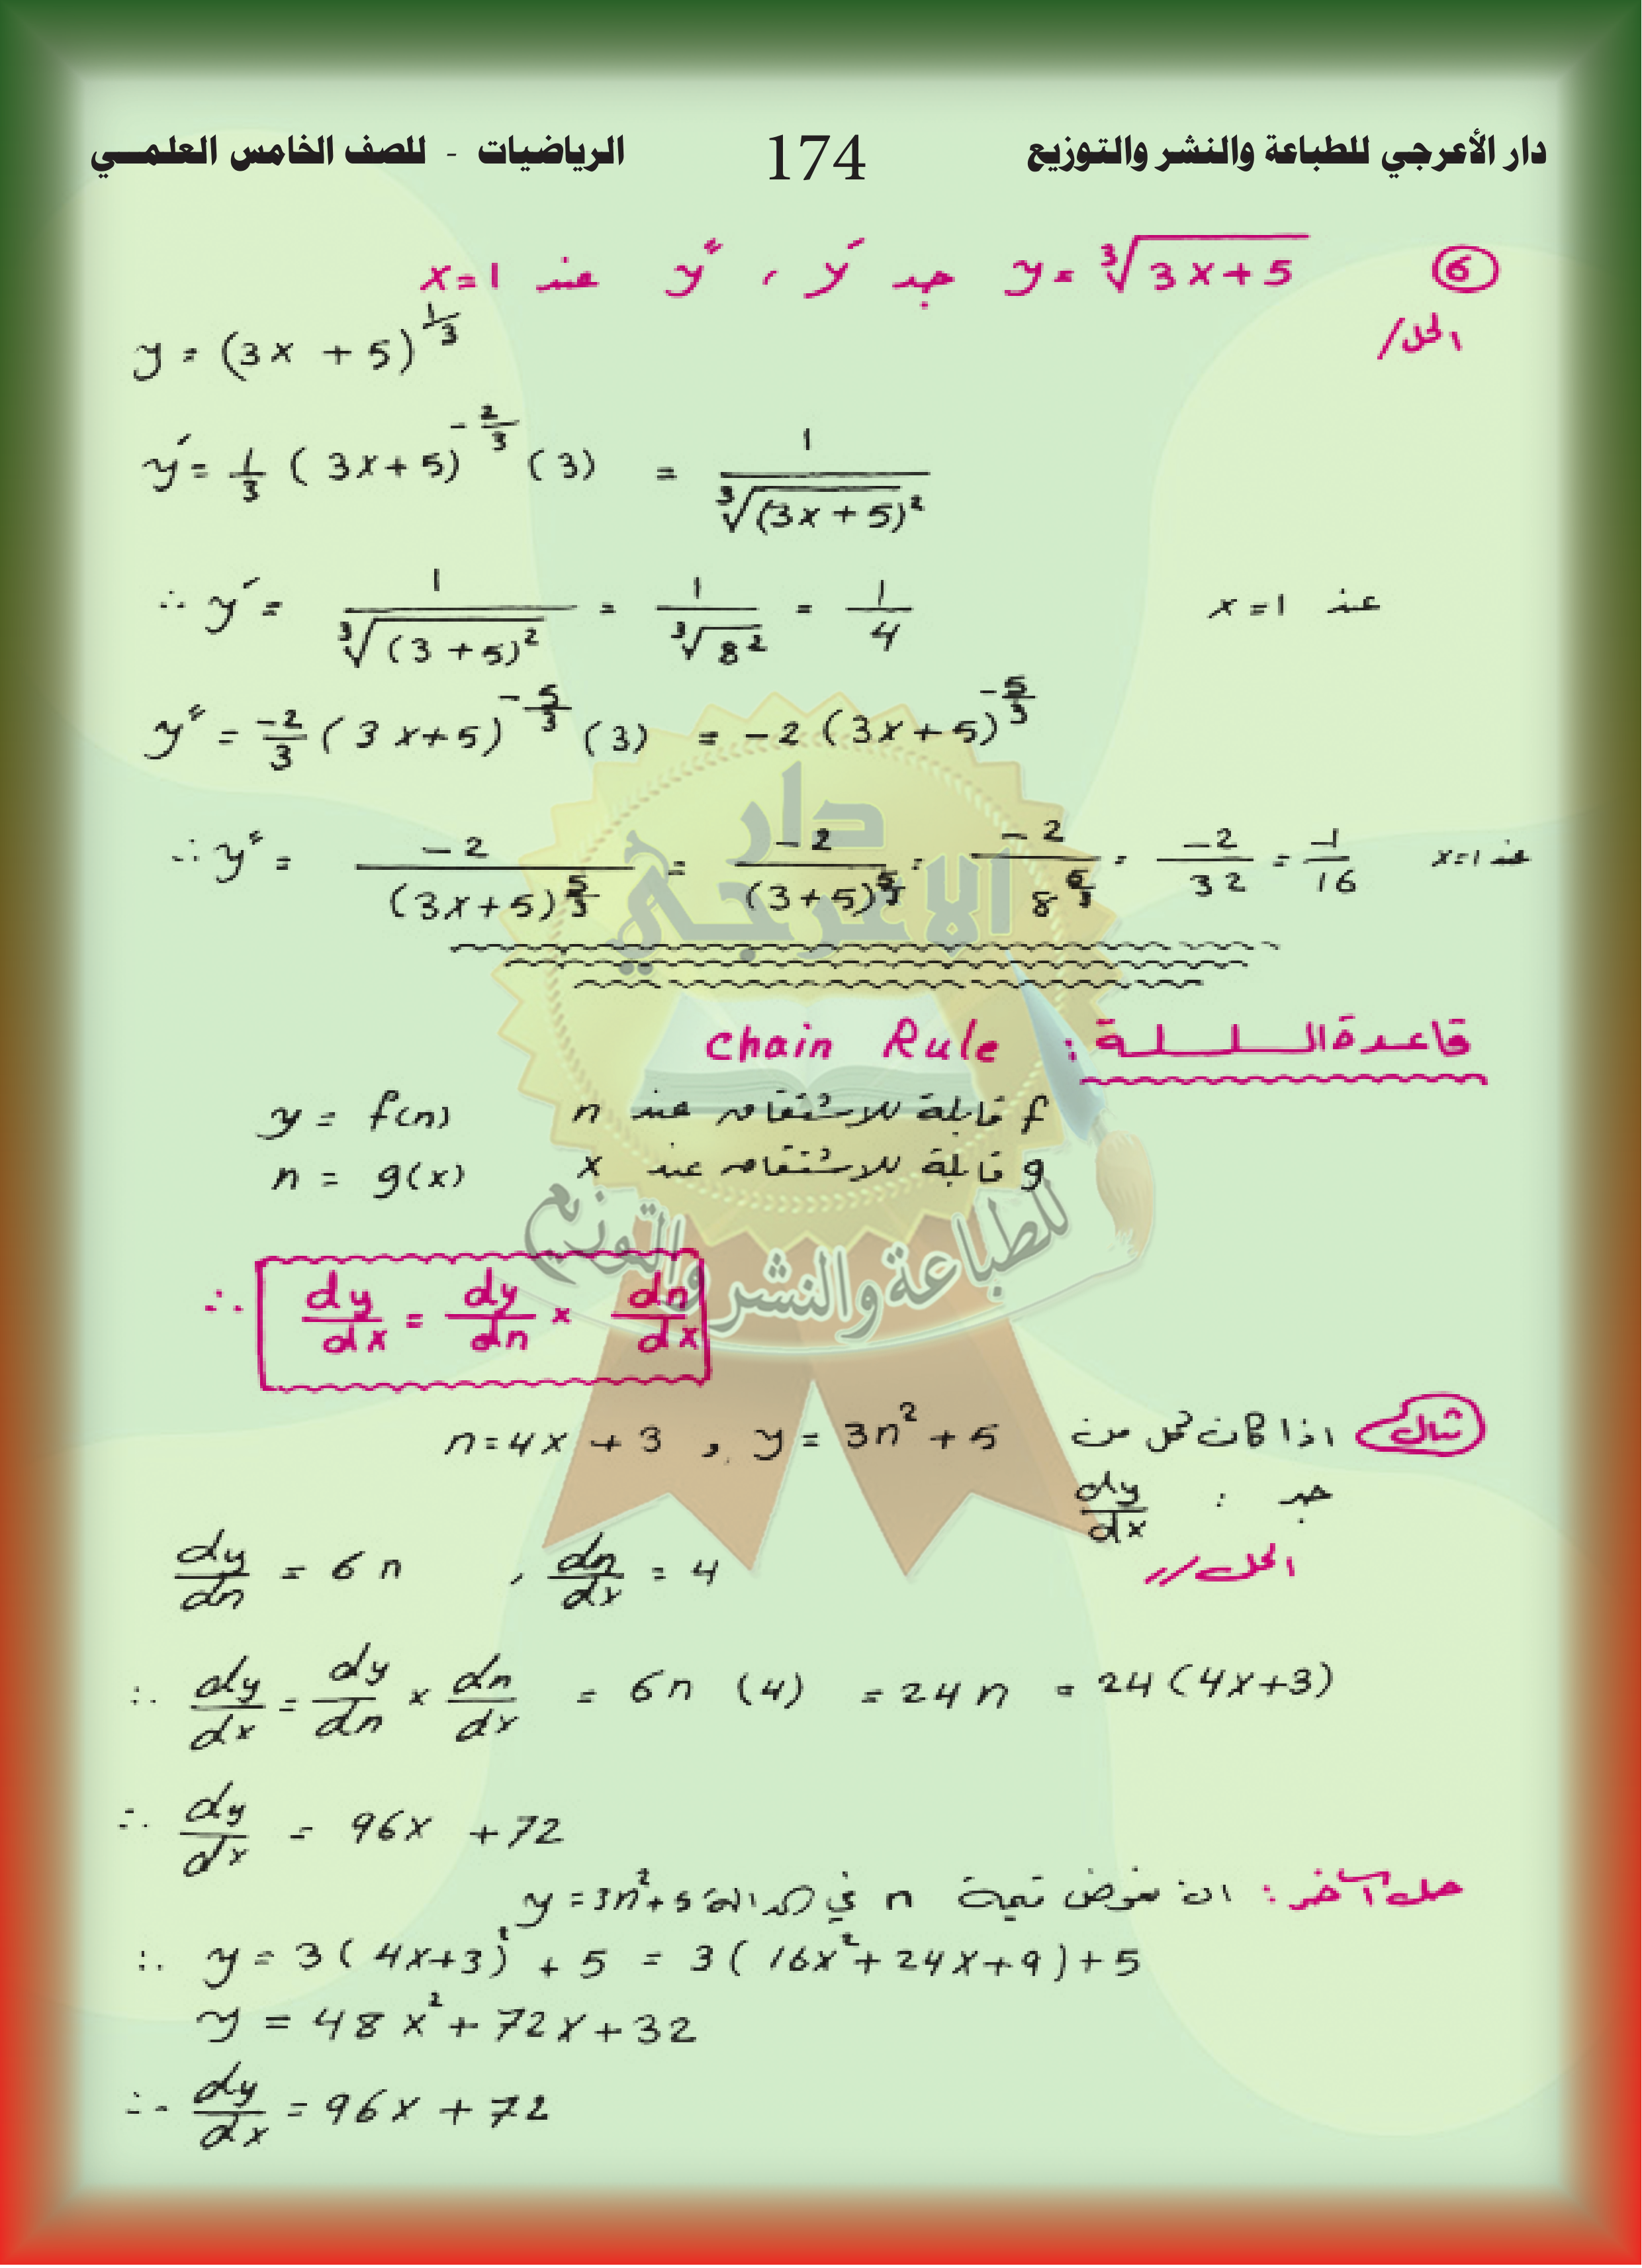 دار الأعرجي للطباعة والنشر والتوزيع 174 الرياضيات - للصف الخامس العلمـــي
⑥ y = ∛(3x+5) جد y′ ، y″ عند x=1
الحل/
y = (3x + 5)^(1/3)
y′ = 1/3 (3x+5)^(-2/3) (3) = 1/∛((3x+5)²)
∴ y′ = 1/∛((3+5)²) = 1/∛(8²) = 1/4 عند x=1
y″ = -2/3 (3x+5)^(-5/3) (3) = -2 (3x+5)^(-5/3)
∴ y″ = -2/(3x+5)^(5/3) = -2/(3+5)^(5/3) = -2/8^(5/3) = -2/32 = -1/16 عند x=1
قاعدة السلسلة : chain Rule
y = f(n) f قابلة للاشتقاق عند n
n = g(x) g قابلة للاشتقاق عند x
∴ dy/dx = dy/dn × dn/dx
مثال اذا كانت كل من y = 3n² + 5 , n = 4x + 3
جد : dy/dx
الحل //
dy/dn = 6n , dn/dx = 4
∴ dy/dx = dy/dn × dn/dx = 6n (4) = 24n = 24(4x+3)
∴ dy/dx = 96x + 72
حل آخر : ان نعوض قيمة n في الدالة y = 3n²+5
∴ y = 3(4x+3)² + 5 = 3(16x² + 24x + 9) + 5
y = 48x² + 72x + 32
∴ dy/dx = 96x + 72
دار
الاعرجي
للطباعة والنشر والتوزيع